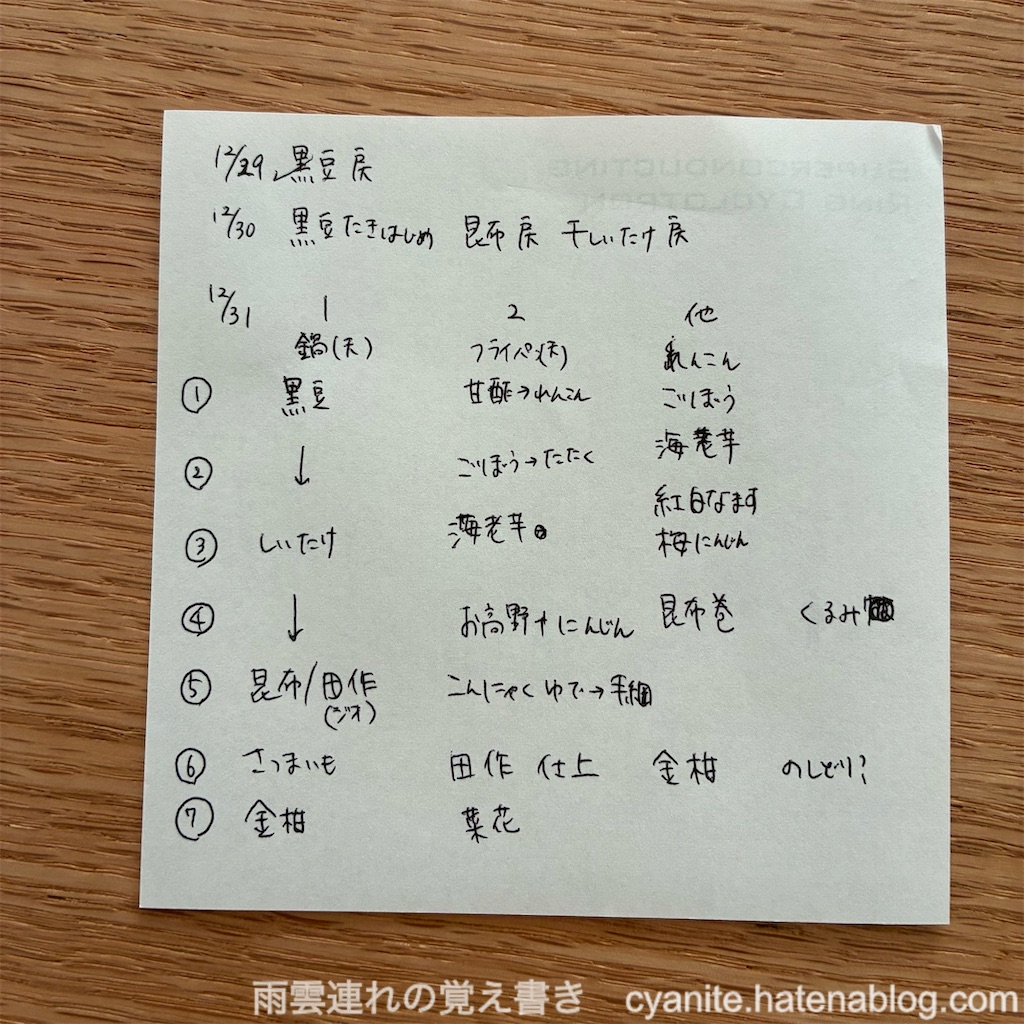 12/29 黒豆戻
12/30 黒豆たきはじめ 昆布戻 干しいたけ戻
12/31 1 2 他
鍋(大) フライパン(大) れんこん
① 黒豆 甘酢→れんこん ごぼう
② ↓ ごぼう→たたく 海老芋
紅白なます
③ しいたけ 海老芋 梅にんじん
④ ↓ お高野+にんじん 昆布巻 くるみ
⑤ 昆布/田作 こんにゃくゆで→手綱
(ジオ)
⑥ さつまいも 田作 仕上 金柑 のしどり?
⑦ 金柑 菜花
SUPERCONDUCTING
RING CYCLOTRON
雨雲連れの覚え書き cyanite.hatenablog.com